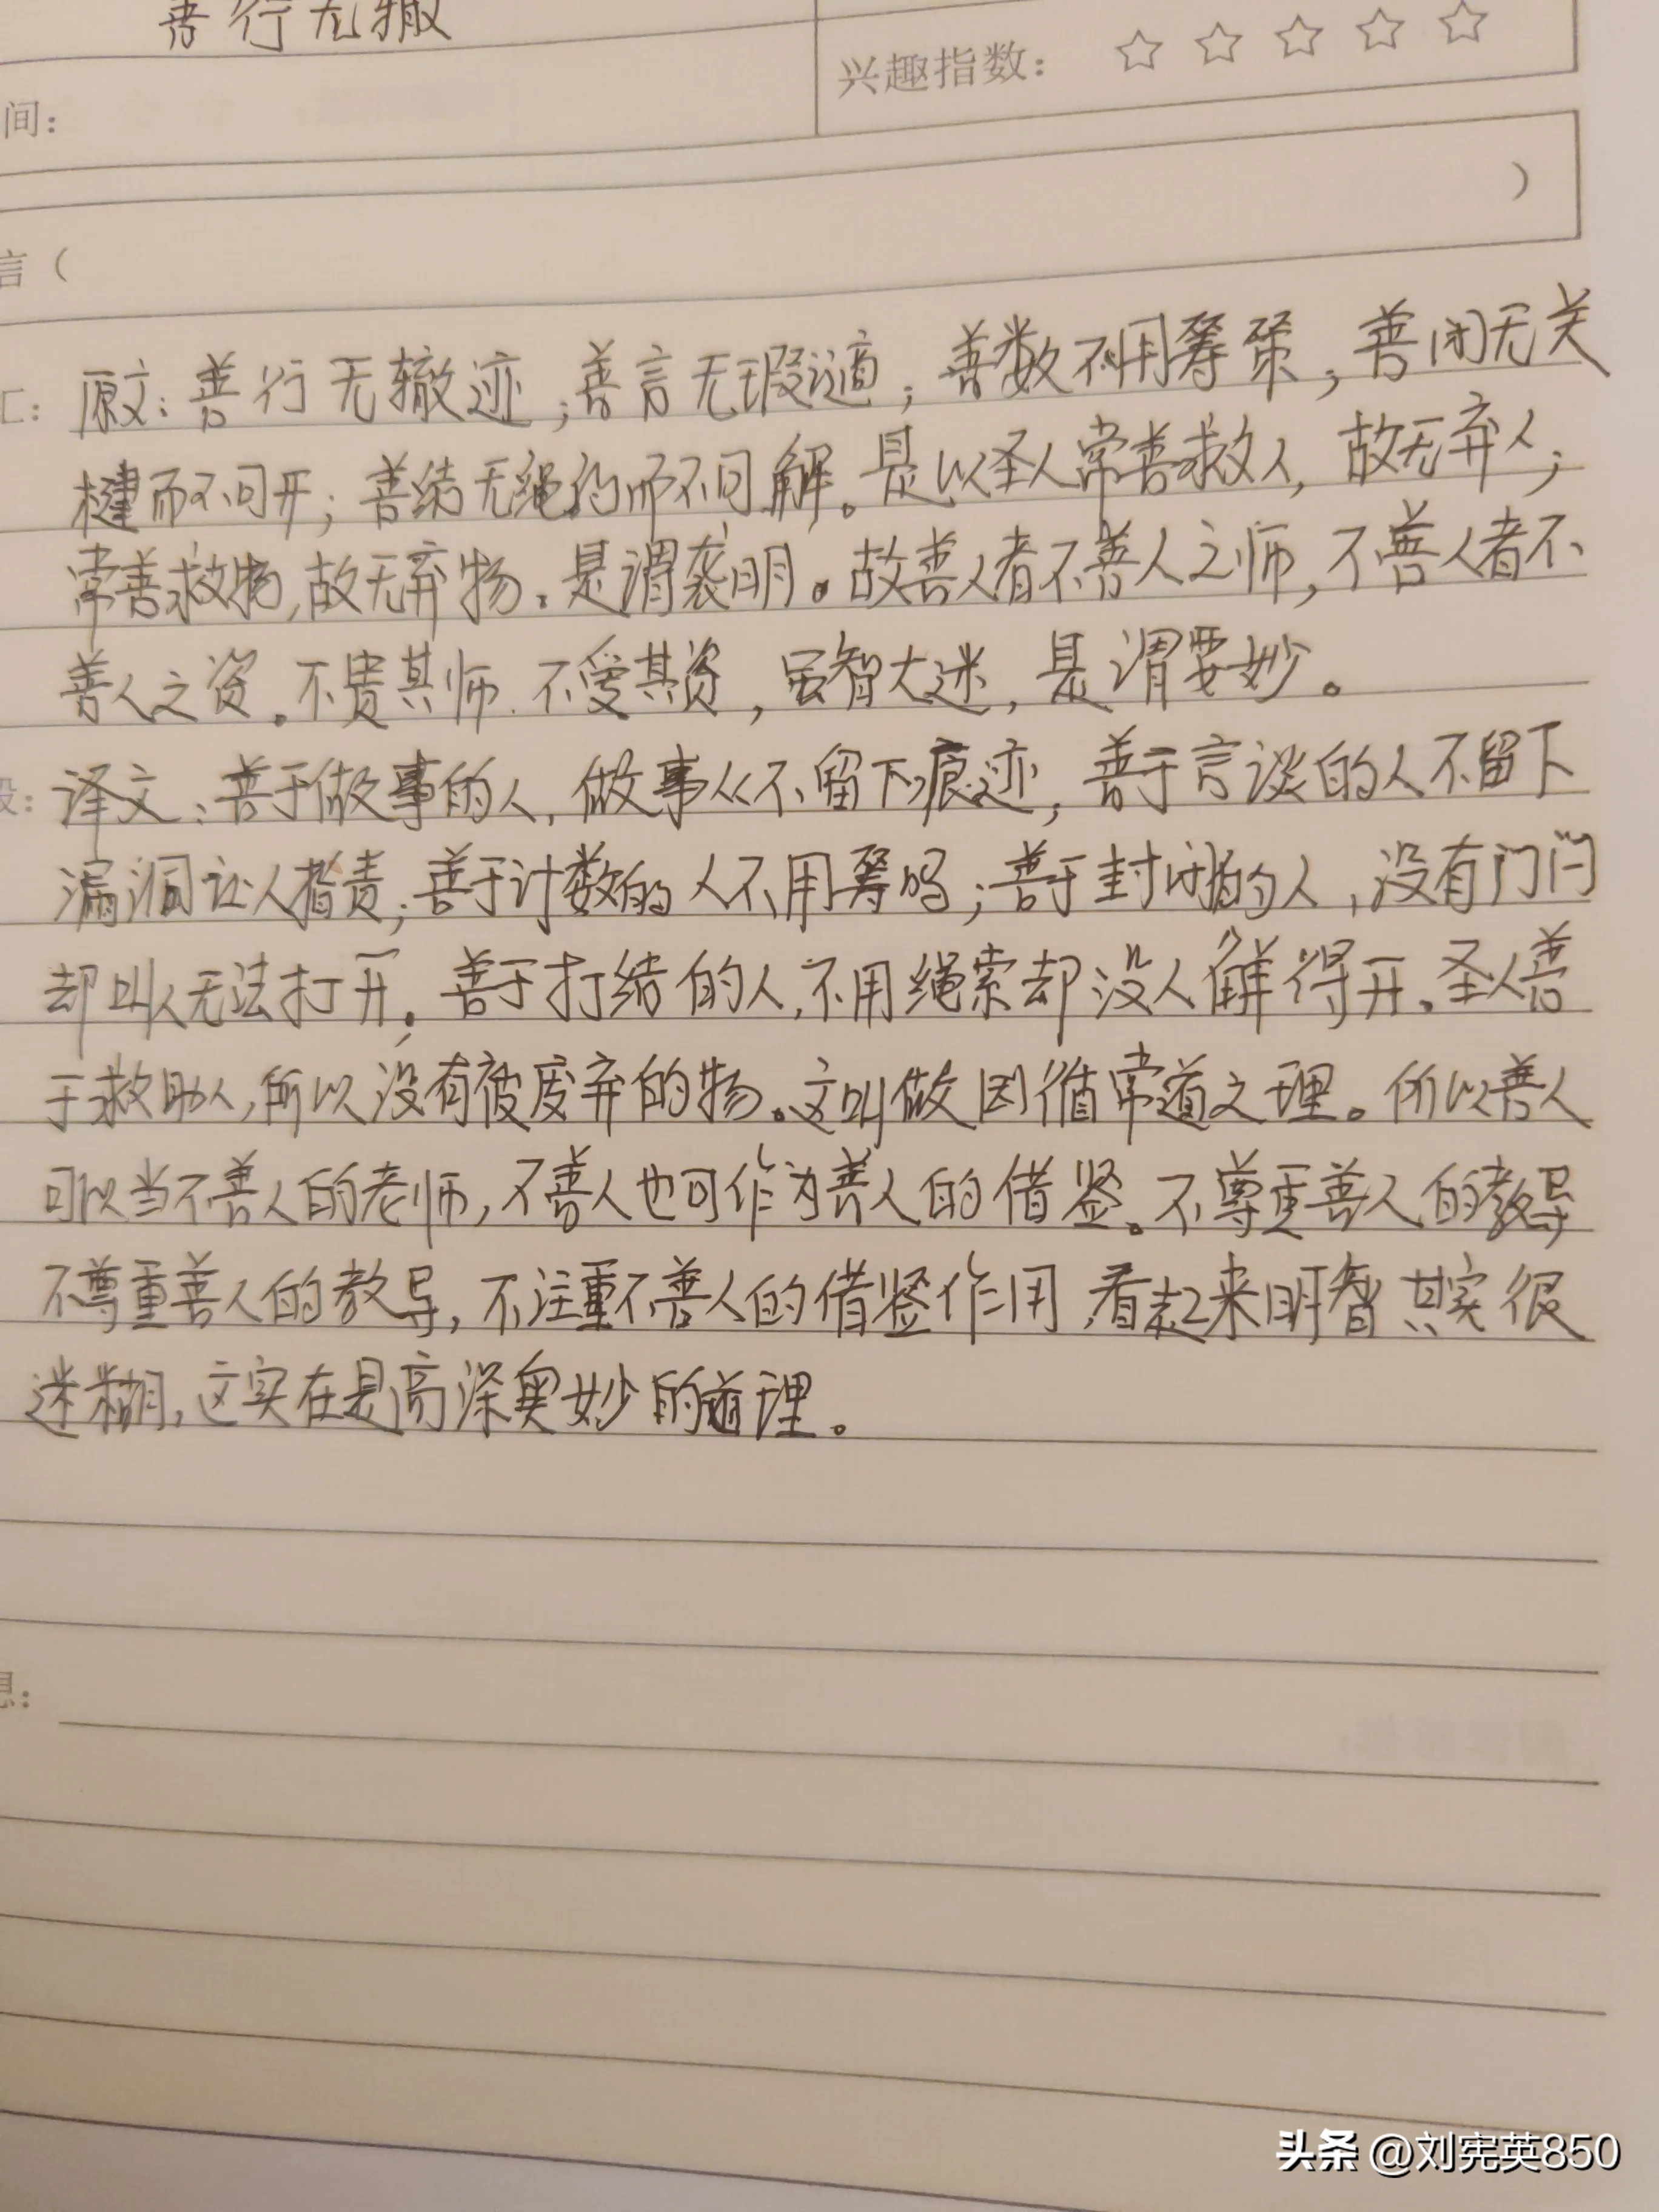 善行无辙
兴趣指数：☆ ☆ ☆ ☆ ☆
间：
）
言（
汇：原文：善行无辙迹；善言无瑕谪；善数不用筹策，善闭无关
楗而不可开；善结无绳约而不可解。是以圣人常善救人，故无弃人；
常善救物，故无弃物。是谓袭明。故善人者不善人之师，不善人者不
善人之资。不贵其师、不爱其资，虽智大迷，是谓要妙。
段：译文：善于做事的人，做事从不留下痕迹，善于言谈的人不留下
漏洞让人指责；善于计数的人不用筹码；善于封闭的人，没有门闩
却叫人无法打开。善于打结的人，不用绳索却没人解得开。圣人善
于救助人，所以没有被废弃的物。这叫做因循常道之理。所以善人
可以当不善人的老师，不善人也可作为善人的借鉴。不尊重善人的教导
不尊重善人的教导，不注重不善人的借鉴作用，看起来明智其实很
迷糊，这实在是高深奥妙的道理。
息：
头条 @刘宪英850